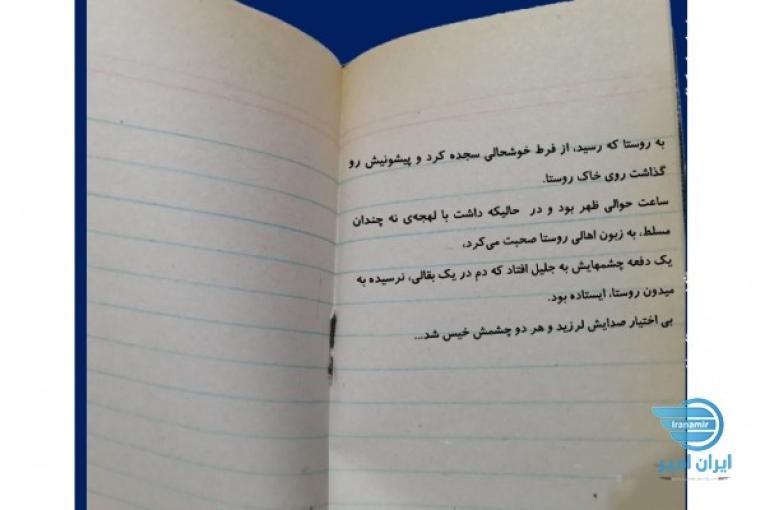 به روستا که رسید، از فرط خوشحالی سجده کرد و پیشونیش رو
گذاشت روی خاک روستا.
ساعت حوالی ظهر بود و در حالیکه داشت با لهجه‌ی نه چندان
مسلط، به زبون اهالی روستا صحبت می‌کرد،
یک دفعه چشمهایش به جلیل افتاد که دم در یک بقالی، نرسیده به
میدون روستا، ایستاده بود.
بی اختیار صدایش لرزید و هر دو چشمش خیس شد...
Iranamir
ایران امیر